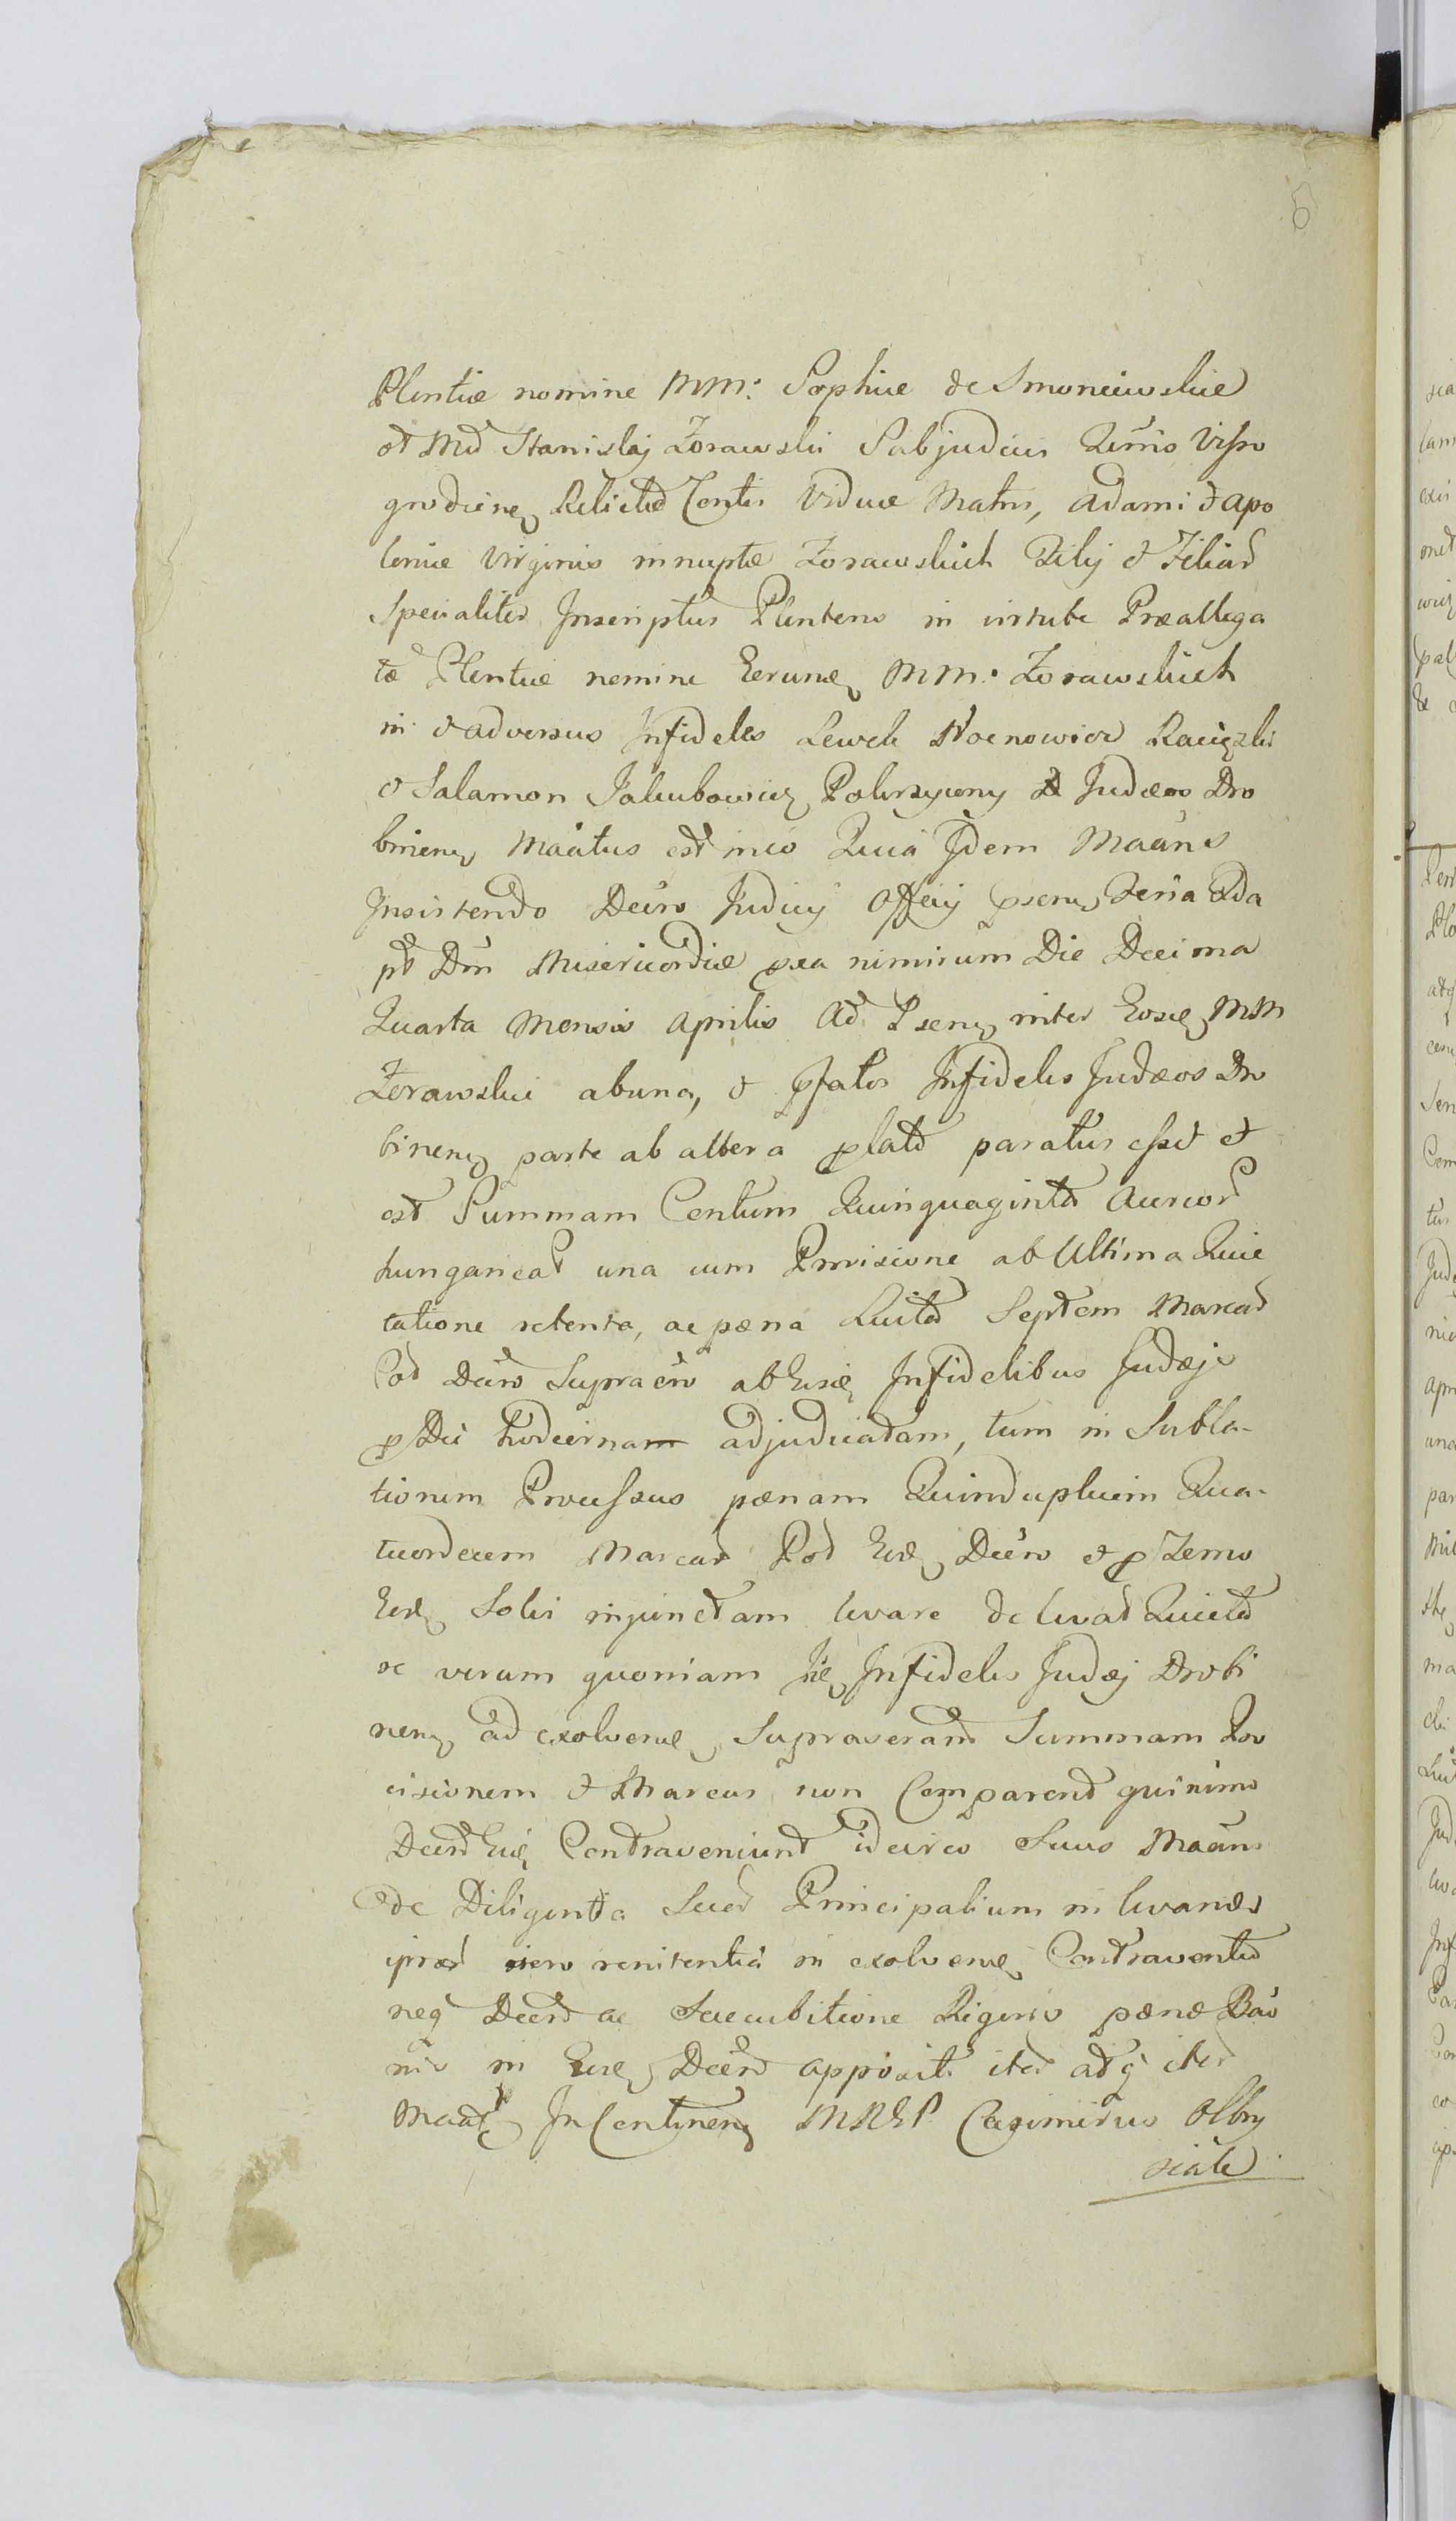 6
Plentiæ nomine MM: Sophiæ de Smoniewskie
et Md Stanislaj Zorawski Subjudicis Ttris Visso
grodien Relictæ Contis Viduæ Matris, Adami et Apo
loniæ Virginis innuptæ Zorawskich Filij et Filiar
Specialiter Inscriptus Plentens in virtute Præallega
tæ Plentiæ nomine Eorund MM: Zorawskich
in et adversus Infideles Lewek Raciązki
et Salamon Jakubowicz Pokrzywny Judæos Dro
binens Maatus est inio Quia Idem Maans
Insistendo Decro Judicij Officij psens Feria 2da
pt Dm Misericordiæ pxa nimirum Die Decima
Quarta Mensis Aprilis Ao Psens inter Eosd MM
Zorawskie ab una, et pfatos Infideles Judæos Dro
binens parte ab altera plato paratus esset et
est Summam Centum Quinquaginta Aureor
hungarical una cum Provisione ab Ultima Quie
tatione retenta, ac pæna Luita Septem Marcar
Pod Decro Supraero ab Eisd Infidelibus Judæjs
p Die hodierna adjudicatam, tum in Subla-
tionem Processus pænam Quindupluim Qua-
tuordecem Marcar Pod Eod Decro et p Termo
Eod Solvi injunctam levare de levat Quieta
se verum quoniam Iid Infideles Judæj Drobi
nens ad exolvend Supraserand Summam Pro
visionem et Marcas non Comparend quinimo
Decro Eid Contraveniunt idcirco Suus Maans
de Diligentia Suor Principalium in levanda
ipsor vero renitentia in exolvend Contraventio
neq Decro ac Succubitione Rigoris pænæ Bao
nis in Eod Decro apposit iter atq iter
Maatq In Contineng MREP Casimirus Olbry
siale